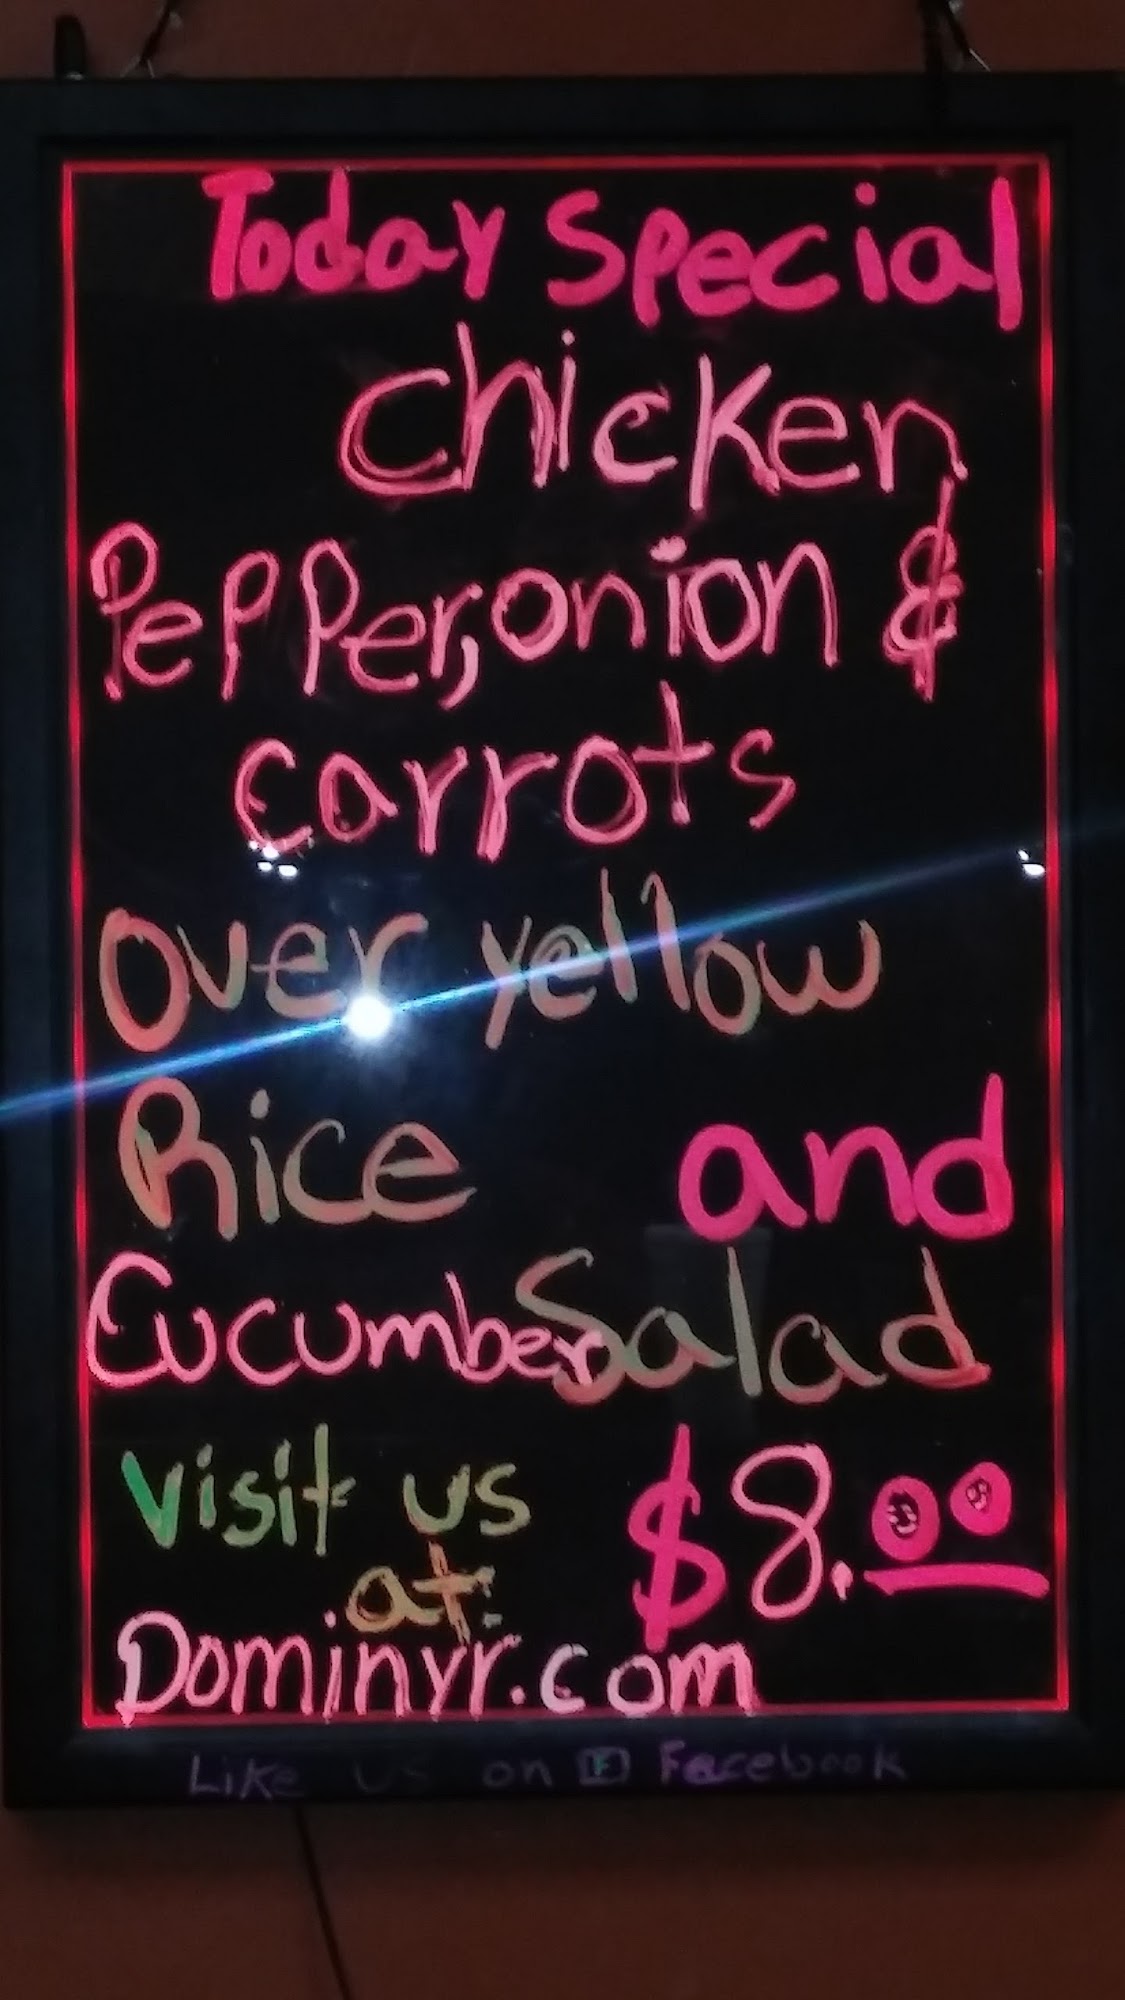 Today Special
Chicken
Pepper, onion &
carrots
over yellow
Rice and
Cucumber Salad
Visit us
at:
$8.00
Dominyr.com
Like us on F Facebook